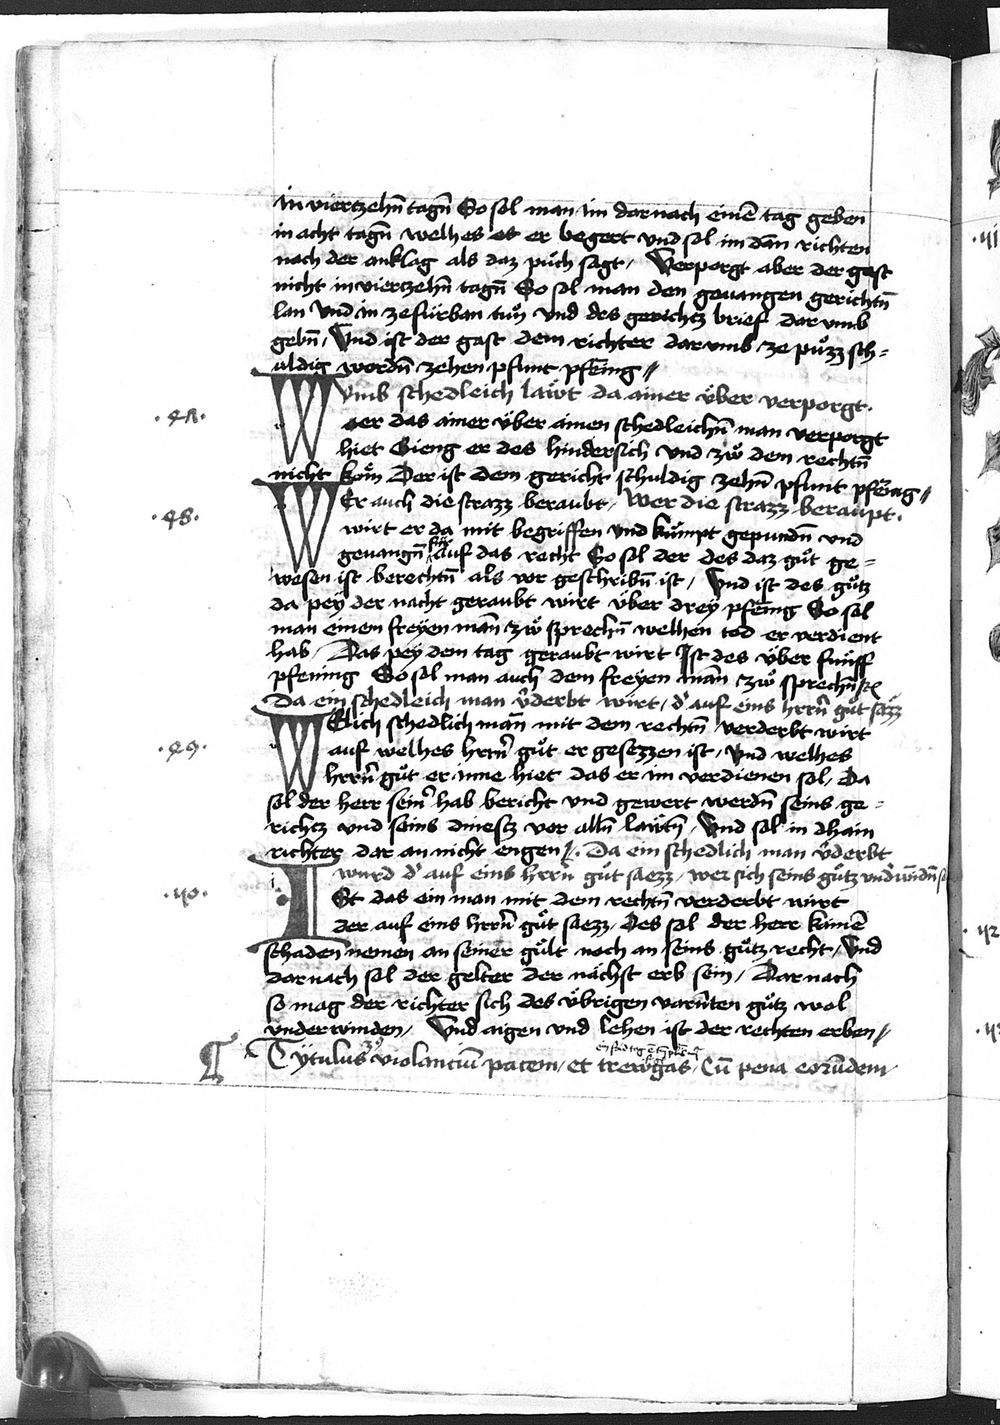 in viertzehn̄ tagn̄ So sol man im dar nach einē tag geben
in acht tagn̄ welhes er begert vnd sol im dan̄ richten
nach der anklag als daz půch sagt / Verporgt aber der gast
nicht in viertzehn̄ tagn̄ So sol man den geuangen gerichtn̄
lan vnd in ze fürban tůn vnd des gerichtz brief dar vmb
gebn̄ / Vnd ist der gast dem richter dar vmb ze půzz sch=
uldig wordn̄ zehen pfunt pfēing //
Vmb schedleich läwt da ainer über verporgt .
.47. Wer das ainer über ainen schedleichn̄ man verporgt
hiet Gieng er des hindersich vnd zwo dem rechtn̄
nicht köm Der ist dem gericht schuldig zehn̄ pfunt pfēing //
Wer die strazz beraupt .
.48. WEr auch die strazz beraubt /
wirt er da mit begriffen vnd kumpt gepundn̄ vnd
geuangn̄ für auf das recht So sol der des daz gůt ge=
wesen ist berechtn̄ als vor geschribn̄ ist / Vnd ist des gůtz
da pey der nacht geraubt wirt über drey pfēing So sol
man einem freyen man̄ zwo sprechn̄ welhen tod er verdient
hab / Das pey dem tag geraubt wirt Ist des über fünff
pfening So sol man auch dem freyen man̄ zwo sprechn̄
Da ein schedleich man v̓derbt wirt / d' auf eins hrrn̄ gůt säzz
.49. WElich schedlich man̄ mit dem rechtn̄ verderbt wirt
auf welhes hrrn̄ gůt er gesezzen ist / vnd welhes
hrrn̄ gůt er inne hiet das er im verdienen sol / Da
sol der herr sein' hab bericht vnd gewert werdn̄ seins ge=
richtz vnd seins dinestz vor alln̄ läwtn̄ / Vnd sol in dhain
richter dar an nicht engen / . Da ein schedlich man v̓derbt
wurd d' auf eins hrrn̄ gůt saezz / wer sich seins gůtz vnd'win̄dn̄ sol
.50. ISt das ein man mit dem rechtn̄ verderbt wirt
der auf eins hrrn̄ gůt säezz / Des sol der herr kainē
schaden nemen an seiner gült noch an seins gůtz recht / Vnd
dar nach sol der gelter der nächst erb sein / Dar nach
so mag der richter sich des übrigen varn̄ten gůtz wol
vnderwinden / Vnd aigen vnd lehen ist der rechten erben //
¶ Tytulus violanciū pacem / et trewgas / Cū pena eorūdem /